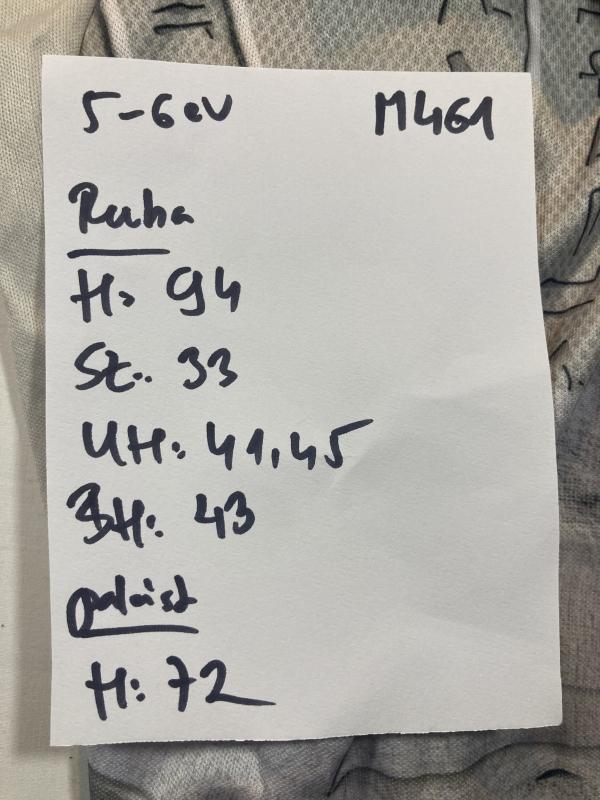 5-6 év M461
Ruha
H: 94
St: 33
UH: 41,45
BH: 43
palást
H: 72